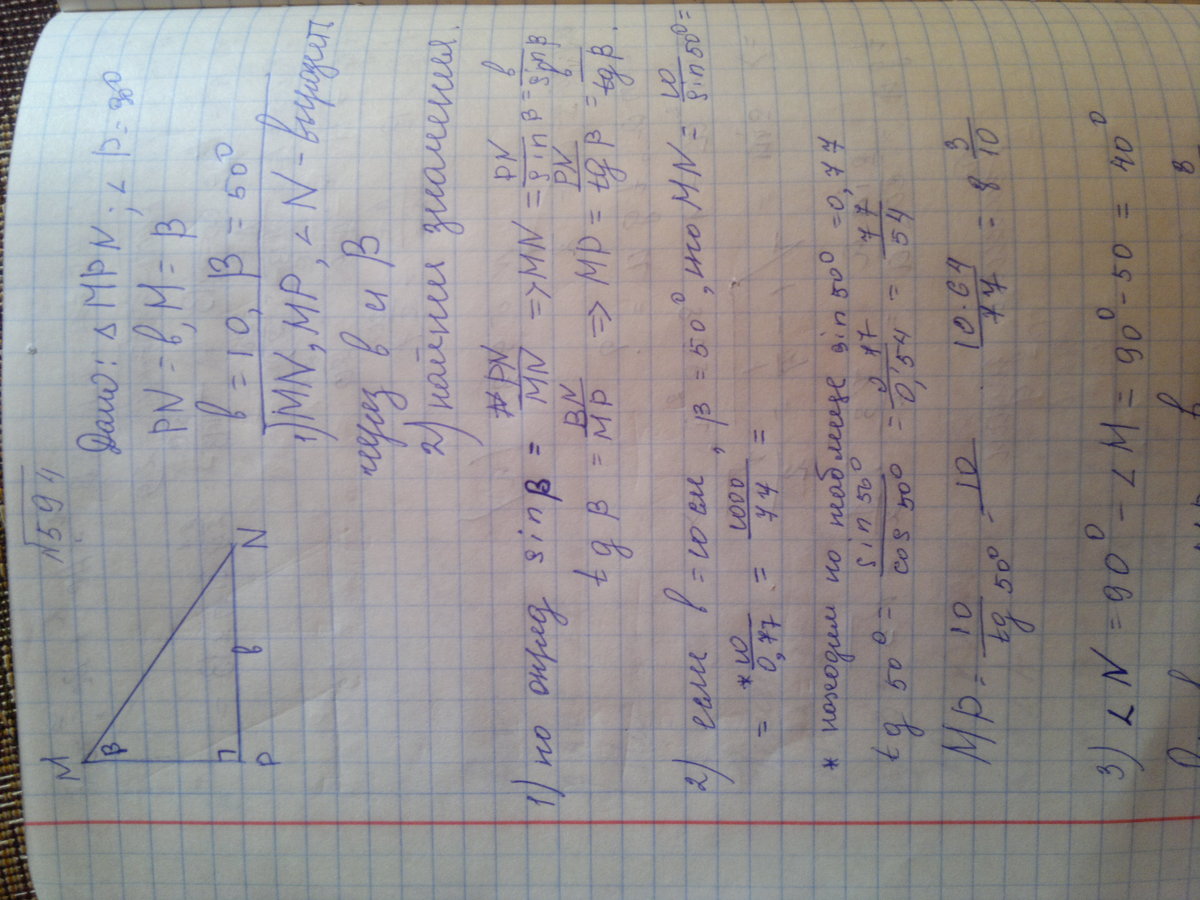 №594
M
β
P
b
N
Дано: △ MPN; ∠ P = 90°
PN = b, M = β
b = 10, β = 50°
1) MN, MP, ∠ N - выразить
через b и β
2) найти значения.
1) по опред sin β = PN/MN => MN = PN/sin β = b/sin β
tg β = BN/MP => MP = PN/tg β = b/tg β.
2) если b = 10 см, β = 50°, то MN = 10/sin 50° =
= *10/0,77 = 1000/77 =
* находим по таблице sin 50° = 0,77
tg 50° = sin 50°/cos 50° = 0,77/0,54 = 77/54
MP = 10/tg 50° - 10 10·64/77 = 8 3/10
3) ∠ N = 90° - ∠ M = 90° - 50 = 40°